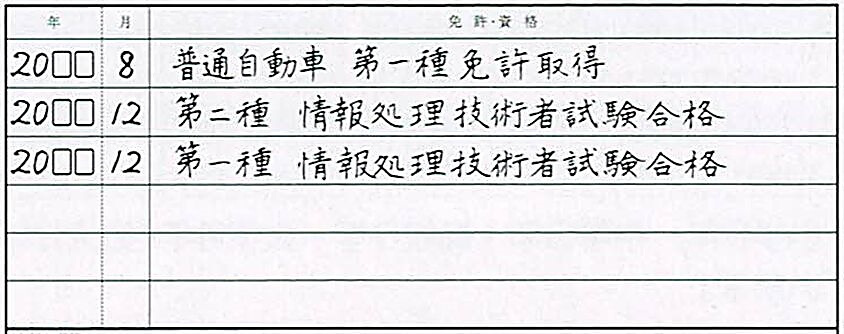 年 月 免許・資格
20□□ 8 普通自動車 第一種免許取得
20□□ 12 第二種 情報処理技術者試験合格
20□□ 12 第一種 情報処理技術者試験合格